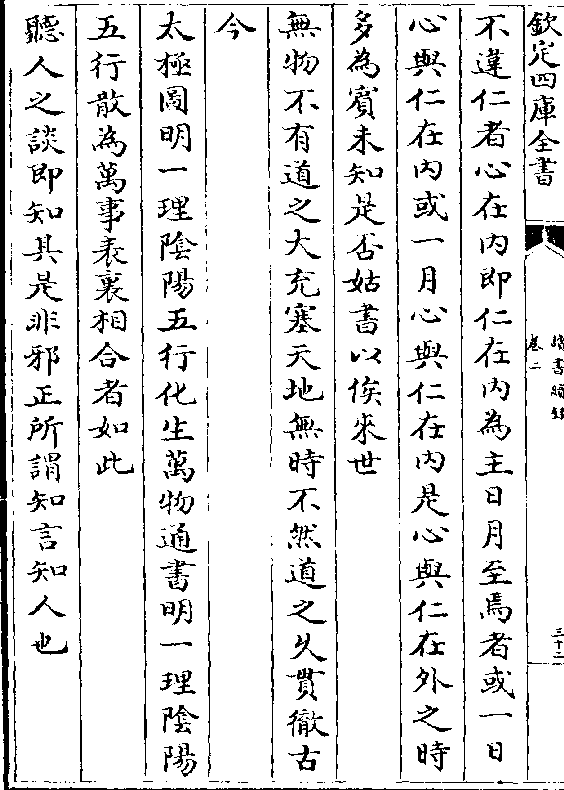 欽定四庫全書
讀書續錄
卷二
三十二
不違仁者心在内即仁在内為主日月至焉者或一日
心與仁在内或一月心與仁在内是心與仁在外之時
多為賓未知是否姑書以俟來世
無物不有道之大充塞天地無時不然道之久貫徹古
今
太極圖明一理陰陽五行化生萬物通書明一理陰陽
五行散為萬事表裏相合者如此
聽人之談即知其是非邪正所謂知言知人也